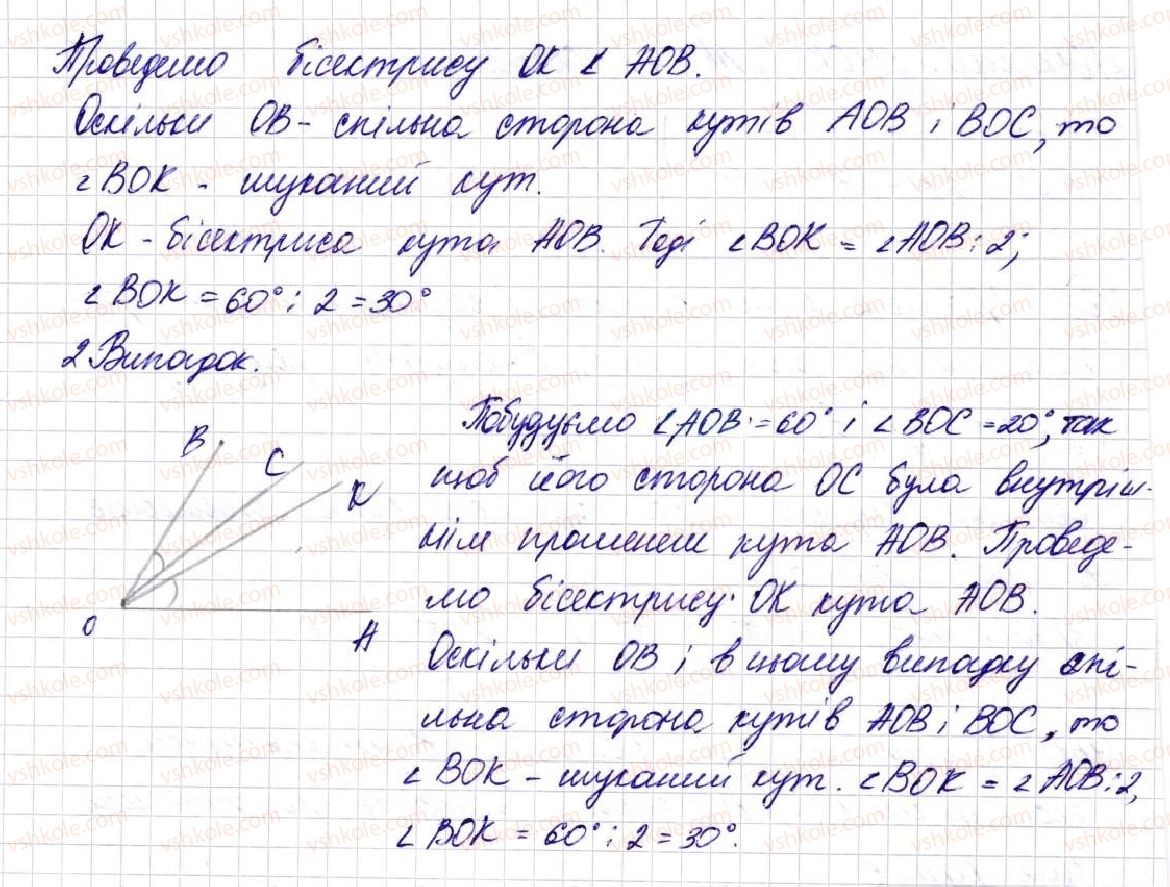 Проведемо бісектрису OK ∠ AOB.
Оскільки OB - спільна сторона кутів AOB і BOC, то
∠BOK - шуканий кут.
OK - бісектриса кута AOB. Тоді ∠BOK = ∠AOB : 2;
∠BOK = 60° : 2 = 30°
2 Випадок.
Побудуємо ∠AOB = 60° і ∠BOC = 20°, так
щоб його сторона OC була внутріш-
нім променем кута AOB. Проведе-
мо бісектрису OK кута AOB.
Оскільки OB і в цьому випадку спі-
льна сторона кутів AOB і BOC, то
∠BOK - шуканий кут. ∠BOK = ∠AOB : 2,
∠BOK = 60° : 2 = 30°.
B
C
K
O
A
vshkole.com